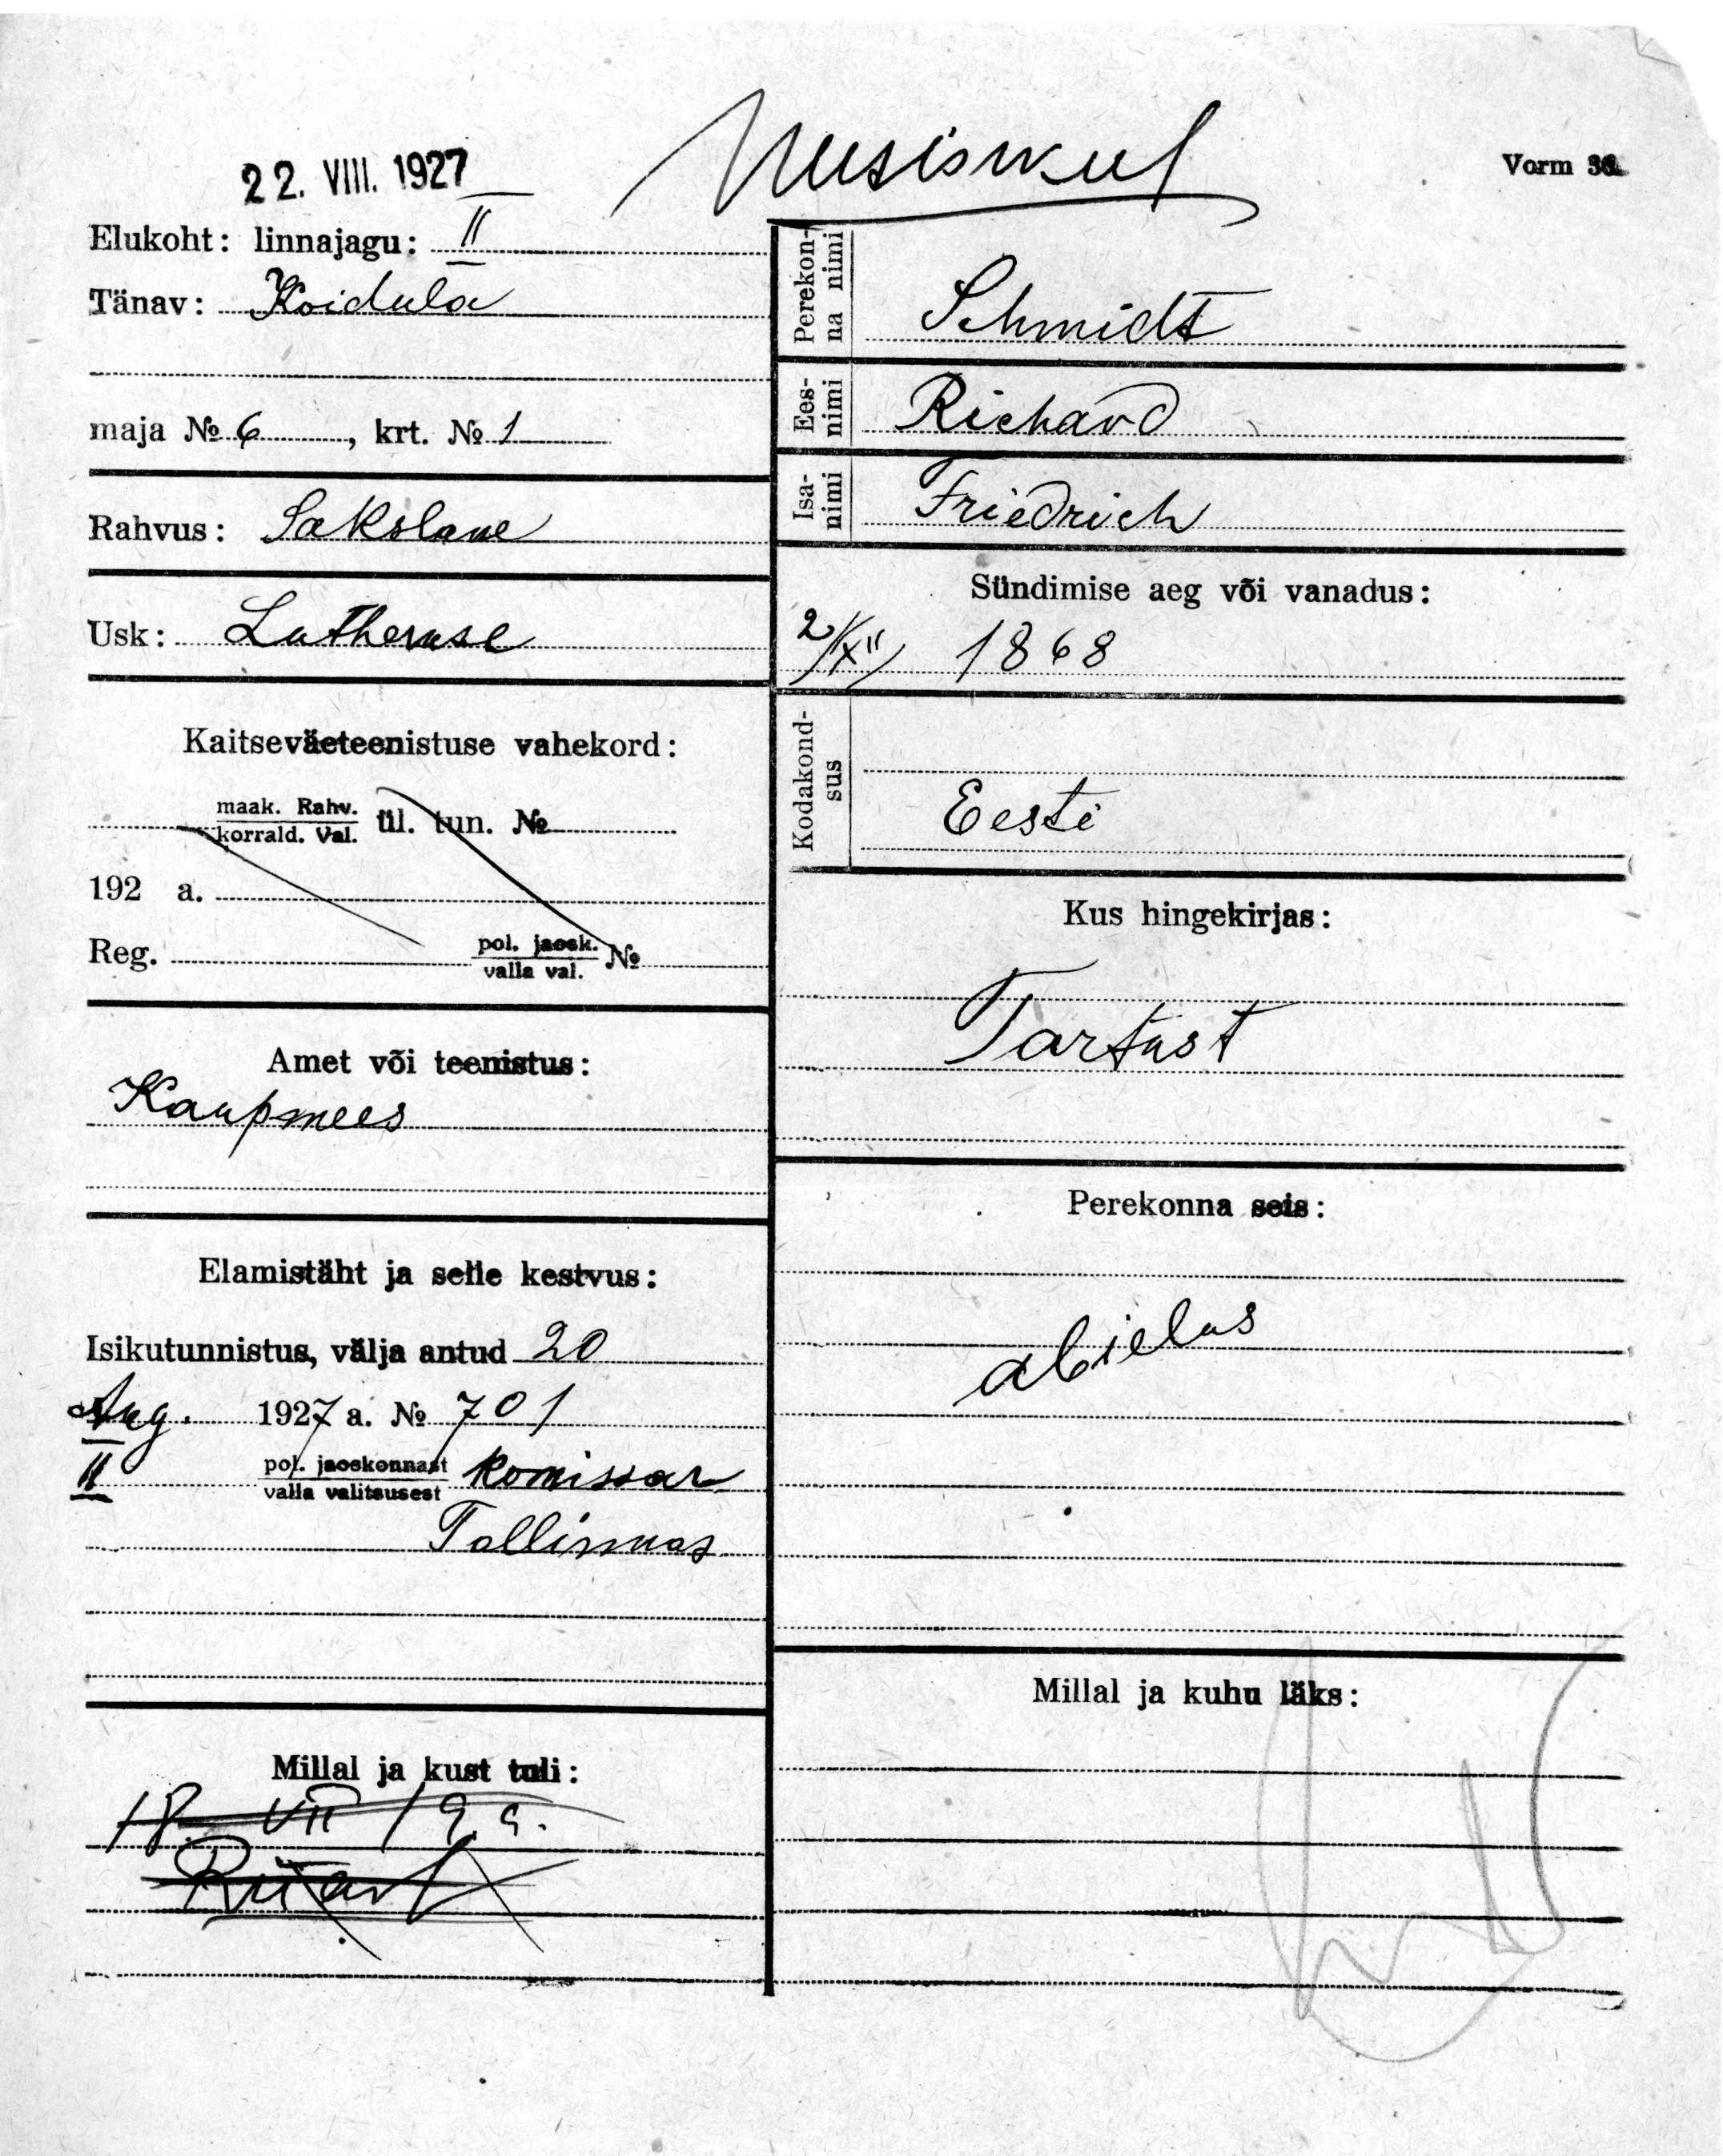 22. VIII. 1927
Uusisikul
Vorm 36.
Elukoht: linnajagu: II
Tänav: Koidula
maja № 6, krt. № 1
Rahvus: Sakslane
Usk: Lutheruse
Kaitseväeteenistuse vahekord:
maak. Rahv.
korrald. Val.
ül. tun. №
192 a.
Reg.
pol. jaosk.
valla val.
№
Amet või teenistus:
Kaupmees
Elamistäht ja selle kestvus:
Isikutunnistus, välja antud 20
Aug. 1927 a. № 701
II
pol. jaoskonnast
valla valitsusest
komissar
Tallinnas
Millal ja kust tuli:
18 VII 19
Perekon-
na nimi
Schmidt
Ees-
nimi
Richard
Isa-
nimi
Friedrich
Sündimise aeg või vanadus:
2/XII 1868
Kodakond-
sus
Eesti
Kus hingekirjas:
Tartust
Perekonna seis:
abielus
Millal ja kuhu läks: